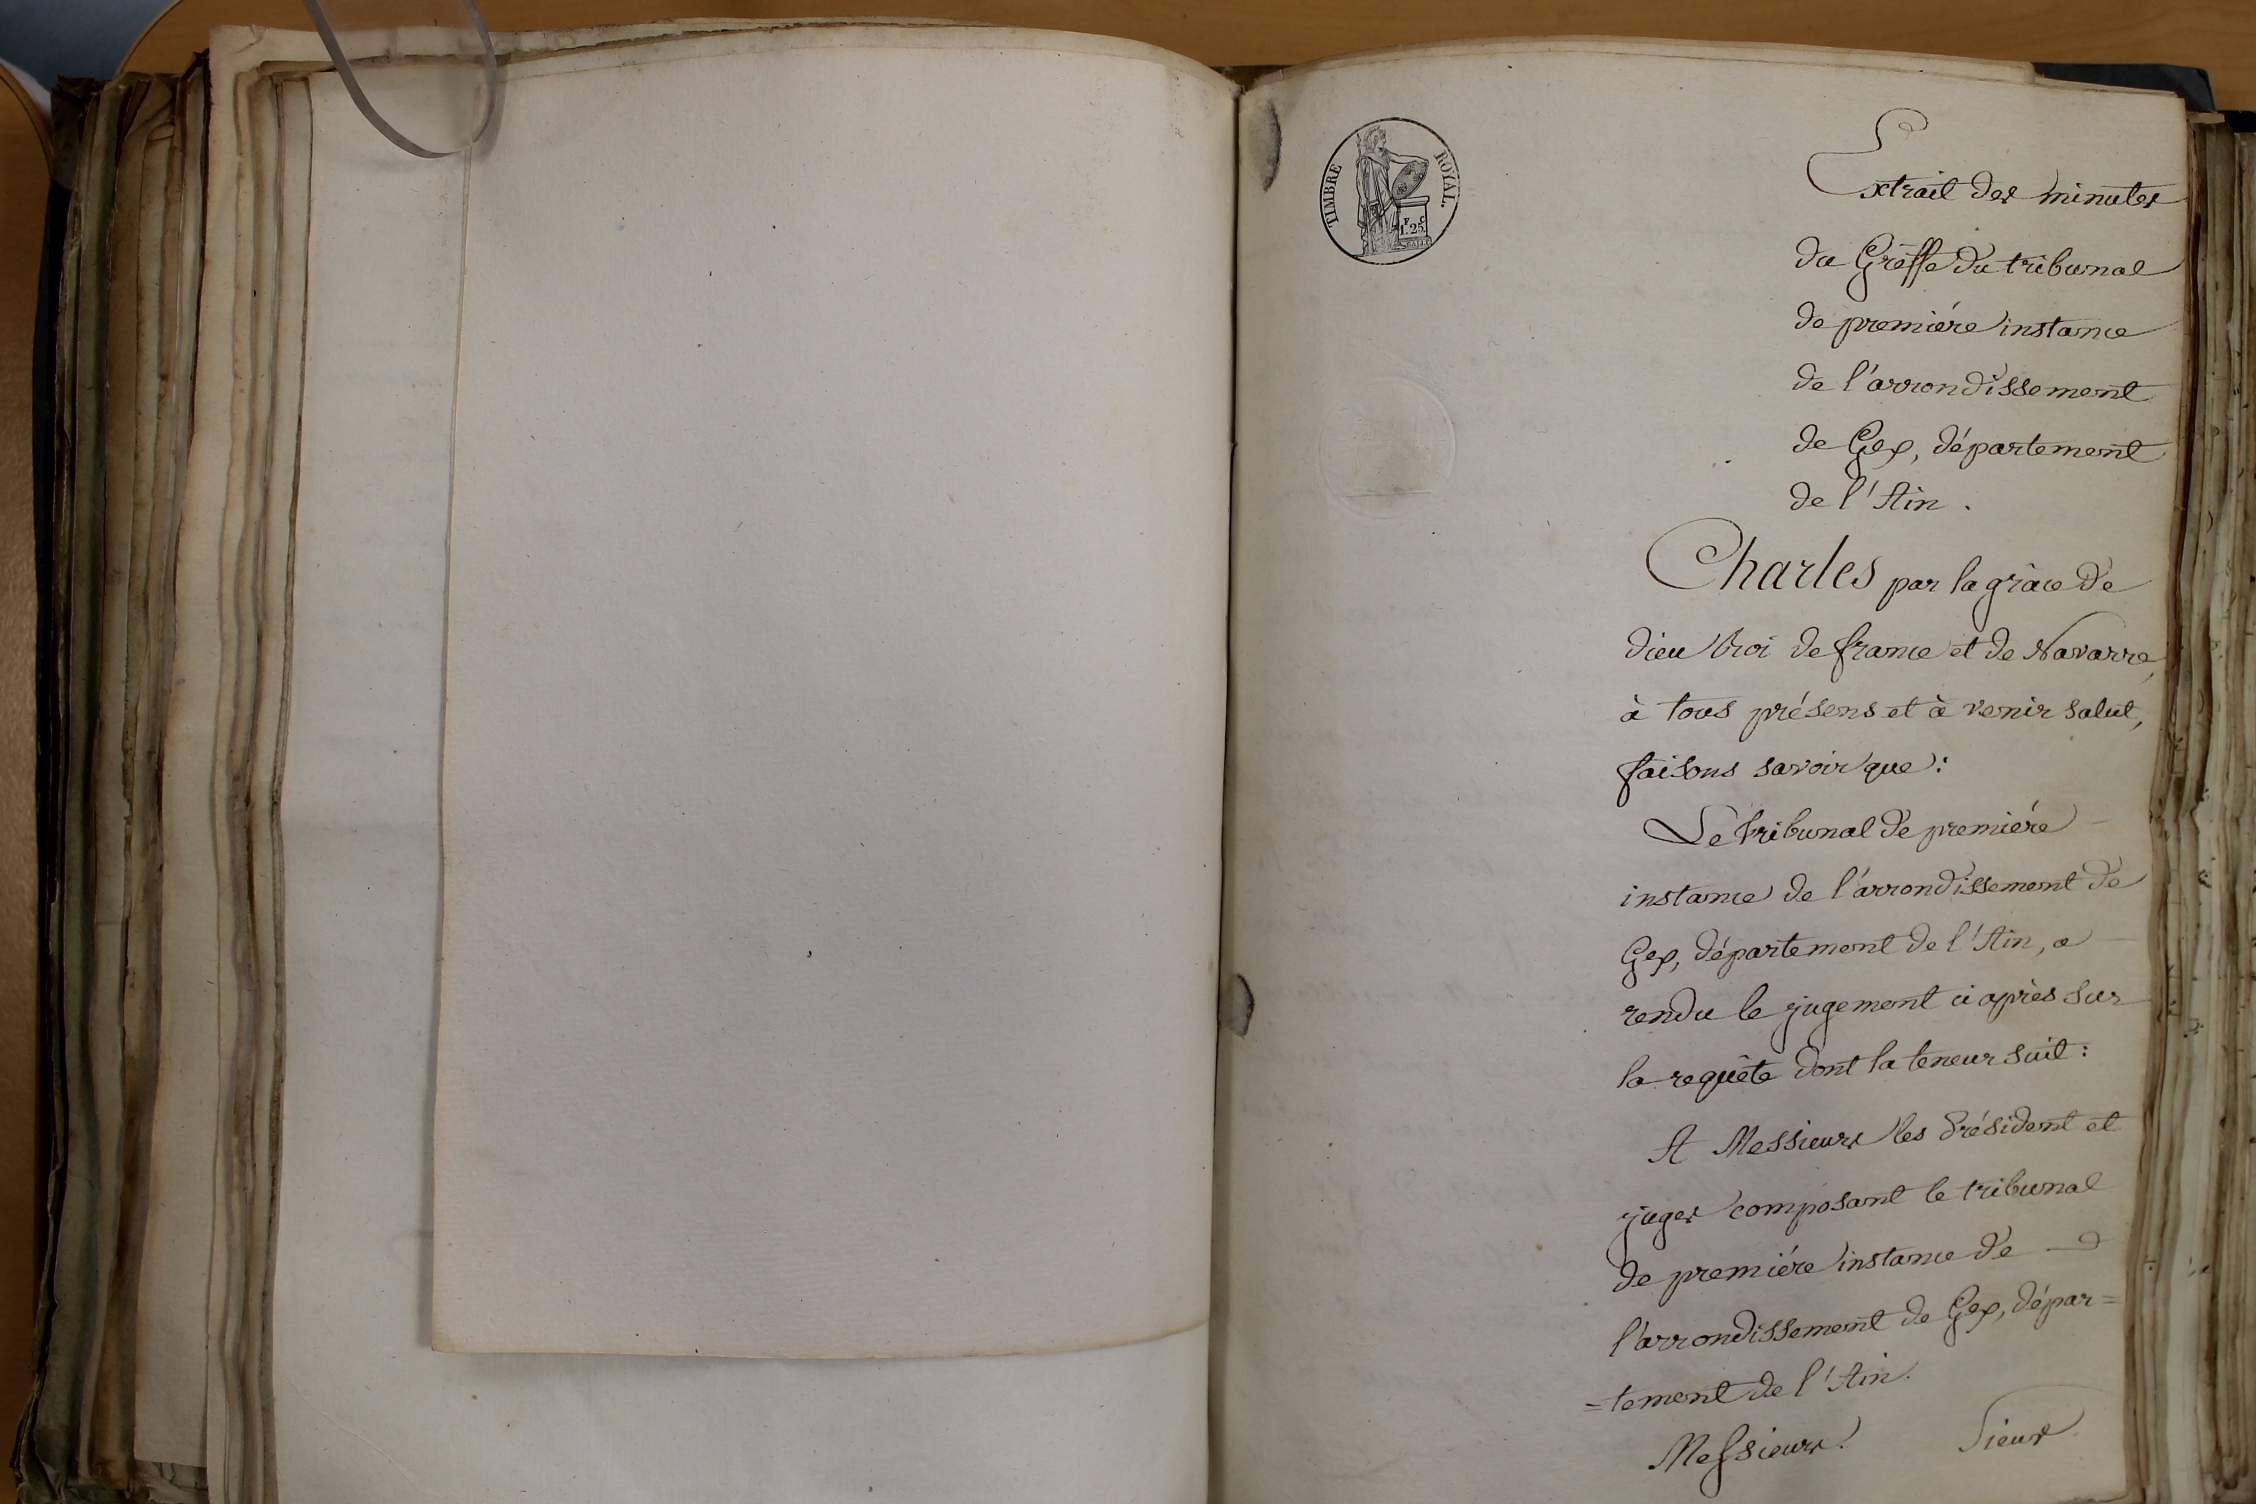 TIMBRE ROYAL.
F. C.
1.25
Extrait des minutes
du Greffe du tribunal
de premiére instance
de l'arrondissement
de Gex, département
de l'Ain.
Charles par la grâce de
dieu Roi de france et de Navarre,
à tous présens et à venir salut,
faisons savoir que:
Le tribunal de premiére
instance de l'arrondissement de
Gex, département de l'Ain, a
rendu le jugement ci après sur
la requête dont la teneur suit:
A Messieurs les Président et
juges composant le tribunal
de premiére instance de
l'arrondissement de Gex, dépar=
=tement de l'Ain.
Messieurs! Sieur